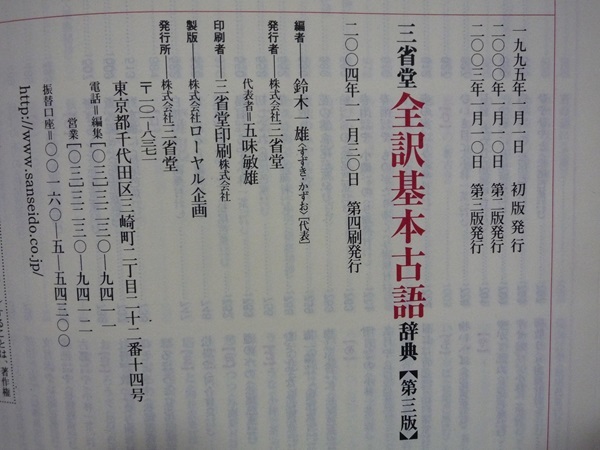 一九九五年一月一日　初版発行
二〇〇〇年一月一〇日　第二版発行
二〇〇三年一月一〇日　第三版発行
三省堂 全訳基本古語辞典【第三版】
二〇〇四年一一月三〇日　第四刷発行
編者――鈴木一雄〈すずき・かずお〉[代表]
発行者――株式会社三省堂
代表者＝五味敏雄
印刷者――三省堂印刷株式会社
製版――株式会社ローヤル企画
発行所――株式会社三省堂
〒一〇一-八三七一
東京都千代田区三崎町二丁目二十二番十四号
電話＝編集[〇三]三二三〇-九四一一
営業[〇三]三二三〇-九四一二
振替口座＝〇〇一六〇-五-五四三〇〇
http://www.sanseido.co.jp/